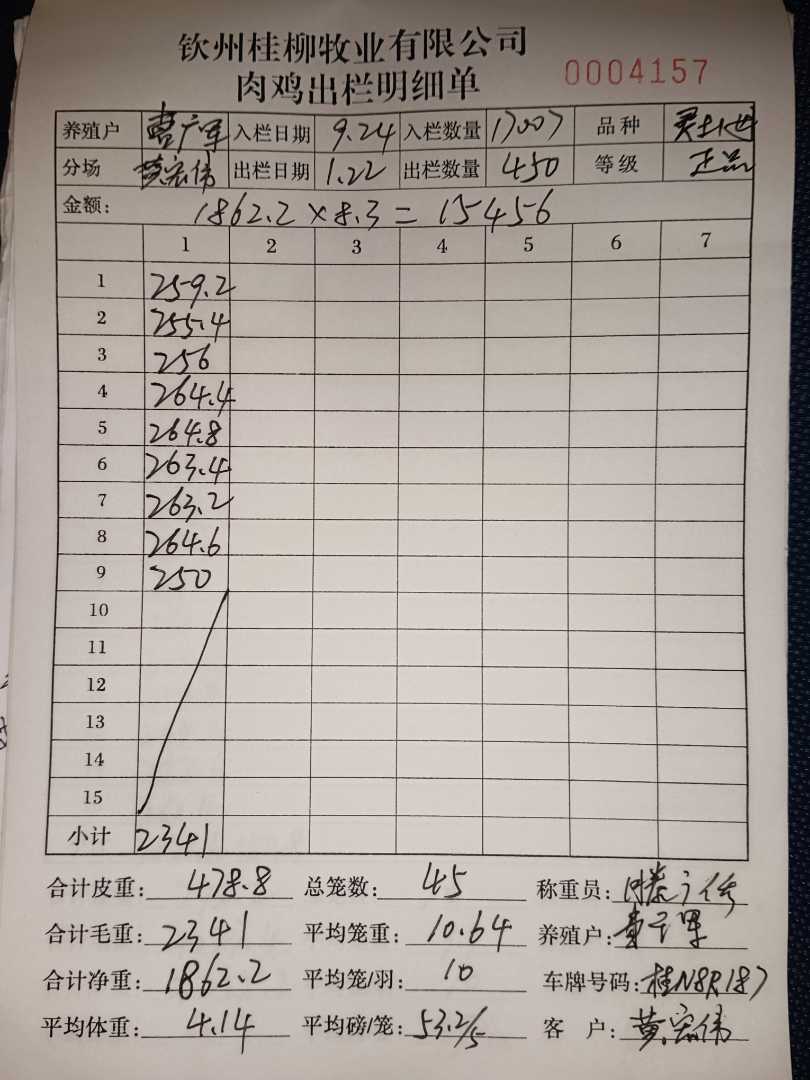 钦州桂柳牧业有限公司
肉鸡出栏明细单 0004157
养殖户 入栏日期 9.24 入栏数量 17007 品种
分场 黄宏伟 出栏日期 1.22 出栏数量 450 等级 正品
金额: 1862.2 × 8.3 = 15456
1 2 3 4 5 6 7
1 259.2
2 255.4
3 256
4 264.4
5 264.8
6 263.4
7 263.2
8 264.6
9 250
10
11
12
13
14
15
小计 2341
合计皮重: 478.8 总笼数: 45 称重员:
合计毛重: 2341 平均笼重: 10.64 养殖户:
合计净重: 1862.2 平均笼/羽: 10 车牌号码: 桂N8R187
平均体重: 4.14 平均磅/笼: 53.2/5 客 户: 黄宏伟